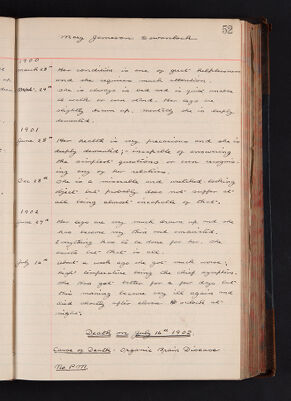 52
Mary Jameson Cowanlock
1900
March 28th Her condition is one of great helplessness
and she requires much attention.
Sept. 29th She is always in bed and is quite unable
to walk or even stand. Her legs are
slightly drawn up. Mentally she is deeply
demented.
1901
June 28th Her health is very precarious and she is
deeply demented; incapable of answering
the simplest questions or even recognis-
ing any of her relations.
Dec 28th She is a miserable and wretched looking
object but probably does not suffer at
all being almost incapable of that.
1902
June 27th Her legs are very much drawn up and she
has become very thin and emaciated.
Everything has to be done for her. She
exists but that is all.
July 16th About a week ago she got much worse;
high temperature being the chief symptom.
She then got better for a few days but
this morning became very ill again and
died shortly after eleven o'clock at
night.
Death on July 16th 1902.
Cause of Death - Organic Brain Disease
No P.M.